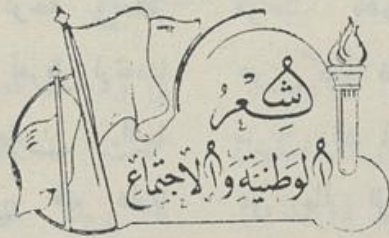 شِعْرُ
الوَطَنيَّةِ وَالاجتماع